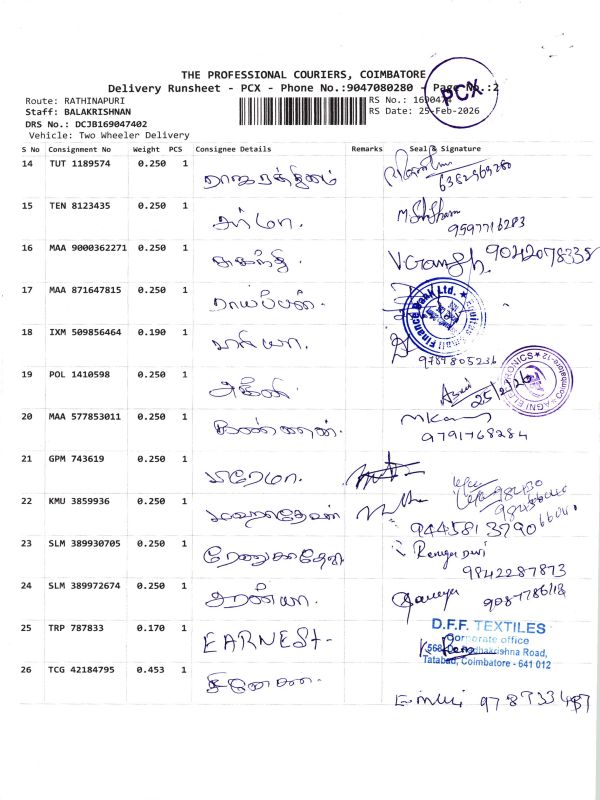 THE PROFESSIONAL COURIERS, COIMBATORE
Delivery Runsheet - PCX - Phone No.:9047080280 - Page No.:2
PCX
Route: RATHINAPURI
RS No.:
Staff: BALAKRISHNAN
RS Date: 25-Feb-2026
DRS No.: DCJB169047402
Vehicle: Two Wheeler Delivery
S No Consignment No Weight PCS Consignee Details Remarks Seal & Signature
14 TUT 1189574 0.250 1
6382969280
15 TEN 8123435 0.250 1 சர்மா.
9597716283
16 MAA 9000362271 0.250 1 சுகந்தி. 9042078335
17 MAA 871647815 0.250 1 ராயப்பன்.
Small Finance Bank Ltd.
18 IXM 509856464 0.190 1 மரியா.
9787805236
19 POL 1410598 0.250 1 அக்னி.
25/2/26
AGNI ELECTRONICS Coimbatore-12
20 MAA 577853011 0.250 1 கண்ணன்.
9791768284
21 GPM 743619 0.250 1
22 KMU 3859936 0.250 1 மகாதேவன்
23 SLM 389930705 0.250 1 ரேணுகாதேவி Renuga Devi
9842287873
24 SLM 389972674 0.250 1 சரண்யா.
25 TRP 787833 0.170 1 EARNEST.
D.F.F. TEXTILES
Corporate office
568, Dr. Radhakrishna Road,
Tatabad, Coimbatore - 641 012
26 TCG 42184795 0.453 1